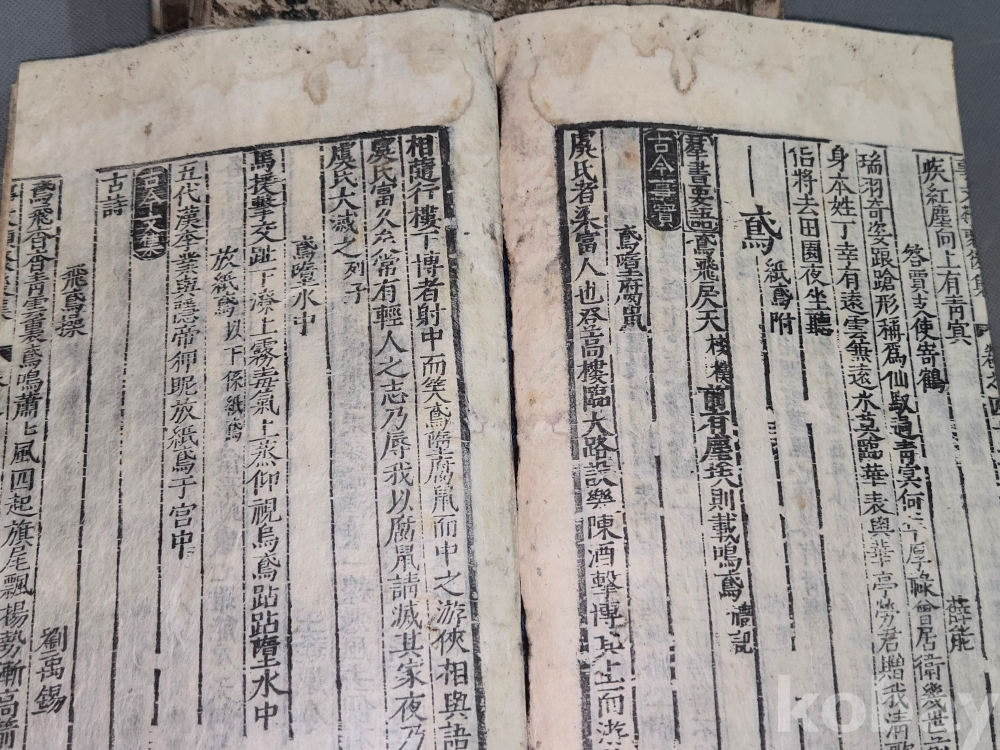 疾紅塵向上有靑㝠
答賈支使寄鶴
薛能
瑞羽奇姿踉蹌形稱爲仙馭過靑㝠何年厚祿曾居衛幾世
身本姓丁幸有遠雲無遠水莫臨華表與華亭勞君贈我淸
侶將去田園夜坐聽
鳶
紙鳶附
羣書要語
鳶飛戾天
前有塵埃則載鳴鳶
禮記
古今事實
鳶墮腐鼠
虞氏者梁富人也登高樓臨大路設樂陳酒擊博其上而游
相隨行樓下博者射中而笑鳶墮腐鼠而中之游俠相與語
虞氏富久矣常有輕人之志乃辱我以腐鼠請滅其家夜乃
虞氏大滅之
列子
鳶墮水中
馬援擊交趾下潦上霧毒氣上蒸仰視烏鳶跕跕墮水中
放紙鳶
以下係紙鳶
五代漢李業與隱帝狎昵放紙鳶于宮中
古今文集
古詩
飛鳶操
劉禹錫
鳶飛杳杳靑雲裏鳶鳴蕭七風四起旗尾飄揚勢漸高箭
kobay